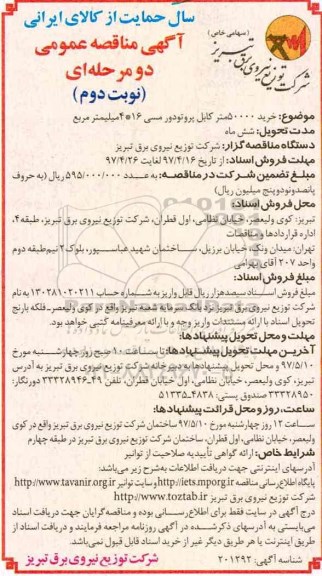 سال حمایت از کالای ایرانی
(سهامی خاص)
شرکت توزیع نیروی برق تبریز
آگهی مناقصه عمومی
دو مرحله‌ای
(نوبت دوم)
موضوع: خرید ۵۰۰۰۰متر کابل پروتودور مسی ۱۶*۴میلیمتر مربع
مدت تحویل: شش ماه
دستگاه مناقصه گزار: شرکت توزیع نیروی برق تبریز
مهلت فروش اسناد: از تاریخ ۹۷/۴/۱۶ لغایت ۹۷/۴/۲۶
مبلغ تضمین شرکت در مناقصه: به عدد ۵۹۵/۰۰۰/۰۰۰ ریال (به حروف
پانصدونودوپنج میلیون ریال)
محل فروش اسناد:
تبریز: کوی ولیعصر، خیابان نظامی، اول قطران، شرکت توزیع نیروی برق تبریز، طبقه۴،
اداره قراردادها و مناقصات
تهران: میدان ونک، خیابان برزیل، ساختمان شهید عباسپور، بلوک۲ نیم‌طبقه دوم
واحد ۲۰۷ آقای بهرامی
مبلغ فروش اسناد:
مبلغ فروش اسناد سیصدهزار ریال قابل واریز به شماره حساب ۱۳۰۲۸۱۰۲۰۲۱۱ به نام
شرکت توزیع نیروی برق تبریز نزد بانک سرمایه شعبه تبریز واقع در کوی ولیعصر فلکه بارنج
تحویل اسناد با ارائه مستندات واریز وجه و با ارائه معرفینامه کتبی خواهد بود.
مهلت و محل تحویل پیشنهادها:
آخرین مهلت تحویل پیشنهادها: تا ساعت ۱۰ صبح روز چهارشنبه مورخ
۹۷/۵/۱۰ و محل تحویل پیشنهادها به دبیرخانه شرکت توزیع نیروی برق تبریز به آدرس
تبریز، کوی ولیعصر، خیابان نظامی، اول خیابان قطران، تلفن ۴۹-۳۳۳۲۸۹۴۶ دورنگار:
۳۳۳۲۸۹۵۰ صندوق پستی: ۴۸۳۸-۵۱۳۳۵
ساعت، روز و محل قرائت پیشنهادها:
ساعت ۱۲ روز چهارشنبه مورخ ۹۷/۵/۱۰ ساختمان شرکت توزیع نیروی برق تبریز واقع در کوی
ولیعصر، خیابان نظامی، اول قطران، ساختمان شرکت توزیع نیروی برق تبریز در طبقه چهارم
شرایط خاص: ارائه گواهی تأییدیه صلاحیت از توانیر
آدرسهای اینترنتی جهت دریافت اطلاعات به‌شرح زیر می‌باشد:
پایگاه اطلاع‌رسانی مناقصه http://iets.mporg.ir و سایت توانیر http://www.tavanir.org.ir
شرکت توزیع نیروی برق تبریز http://www.toztab.ir
درج آگهی در سایت فقط برای اطلاع‌رسانی بوده و مناقصه‌گزاران جهت دریافت اسناد
می‌بایستی به آدرسهای ذکرشده در آگهی روزنامه مراجعه فرمایند و دریافت اسناد از
طریق اینترنت یا هر طریق دیگر غیر از خرید اسناد قابل قبول نمی‌باشد.
شناسه آگهی: ۲۰۱۲۹۲
شرکت توزیع نیروی برق تبریز